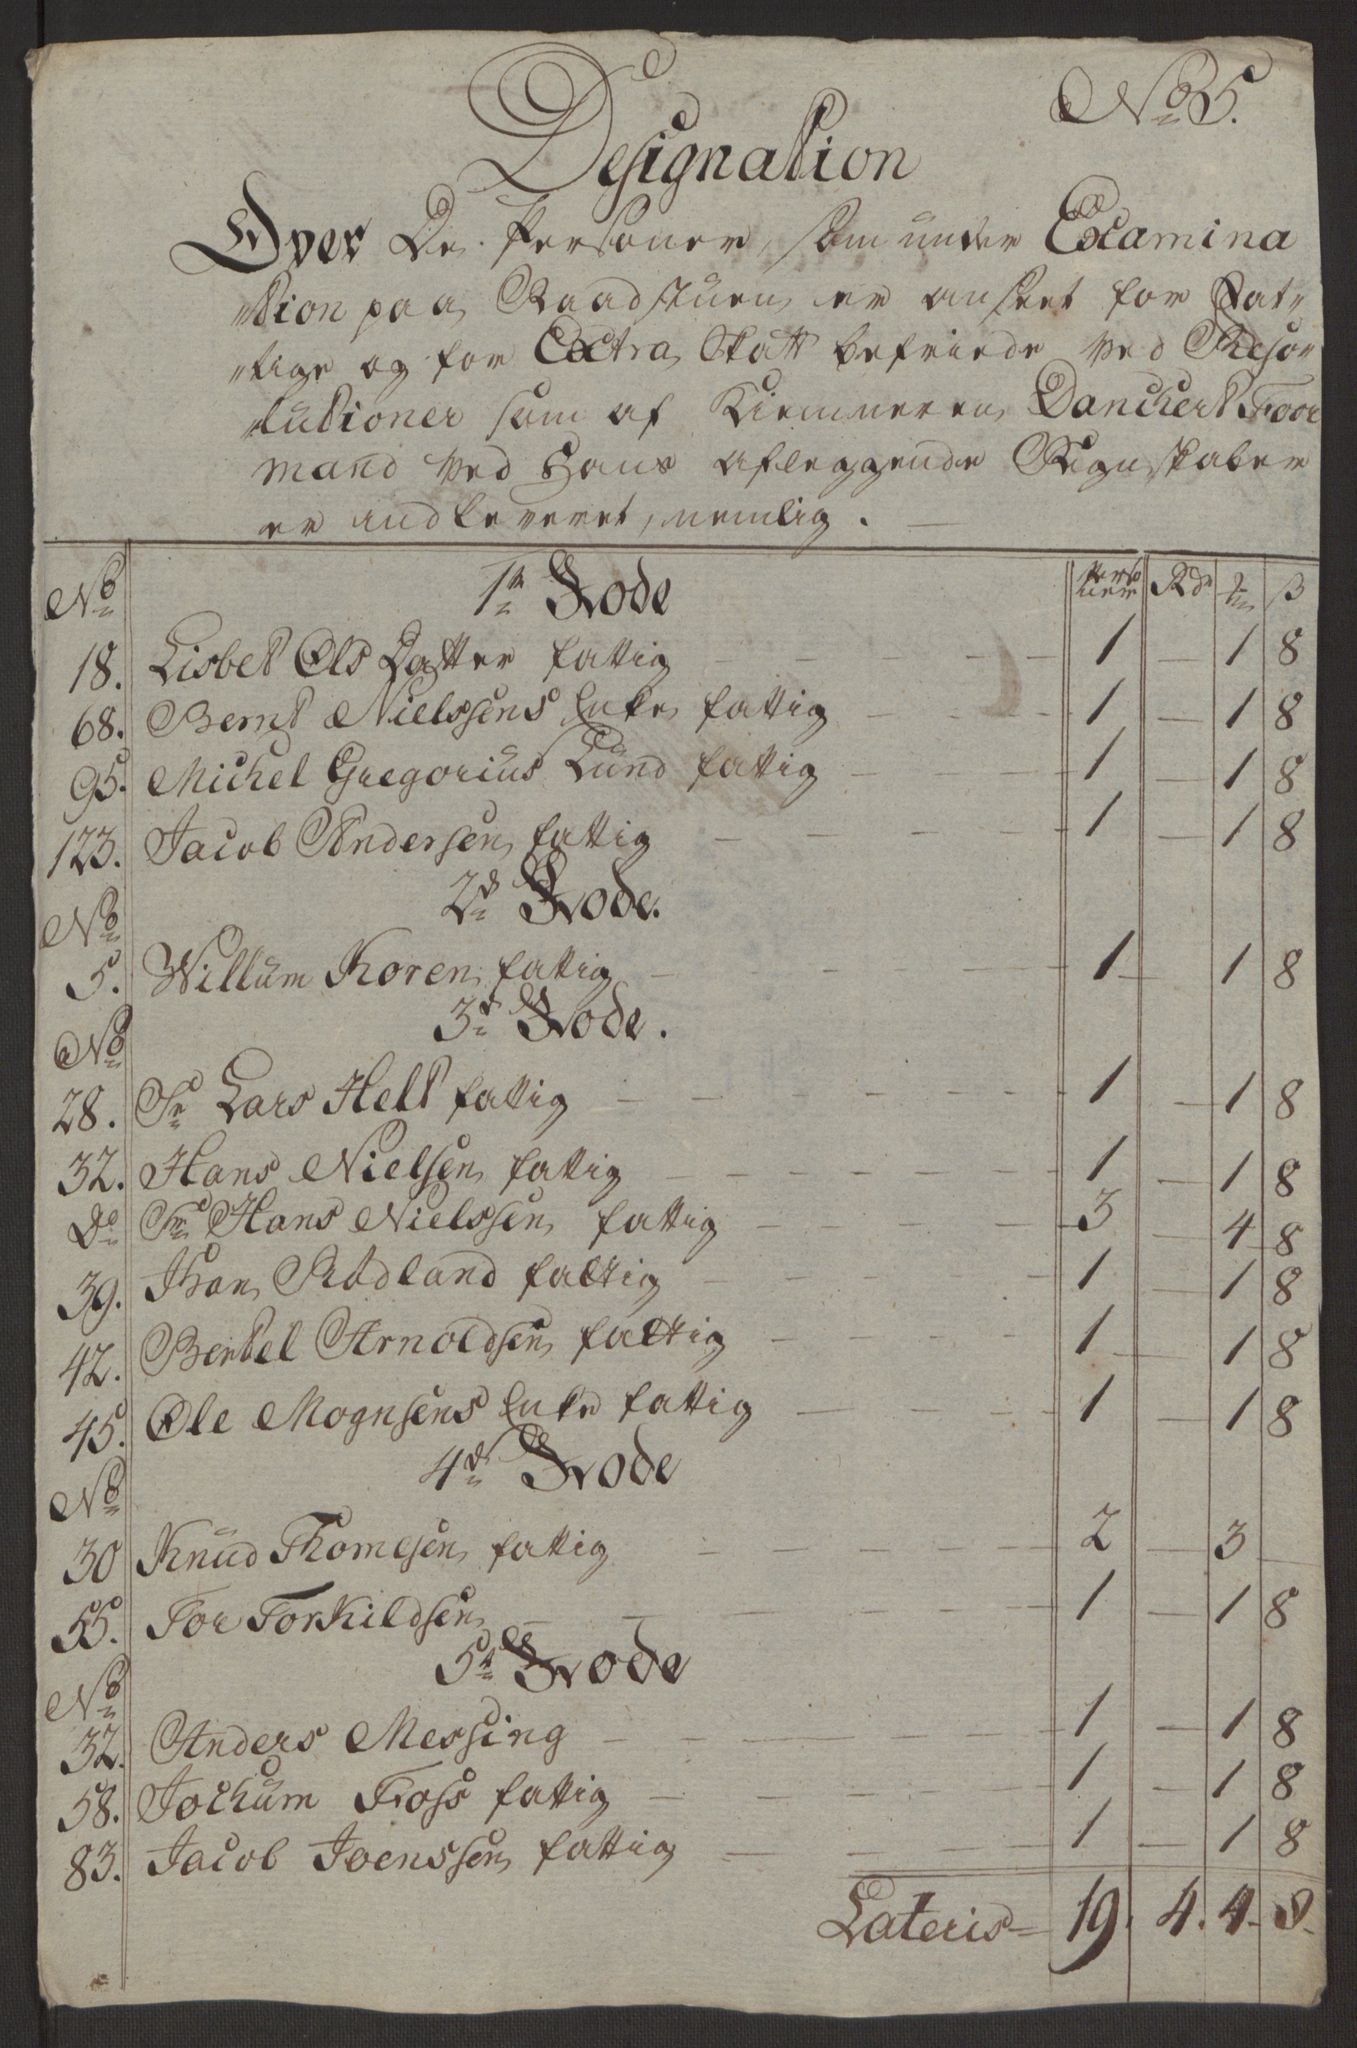 No 5.
Designation
Over De Personer, som under Examina
tion paa Raadstuen er anseet for Fat-
tige og for Extra Skatt befriede ved Reso-
lutioner som af Kiemneren Danchert Foor
mand ved Hans aflæggende Regnskaber
er indleveret, nemlig.
No 1te Rode Personer Rdr mk ß
18. Lisbet Ols Datter fattig 1 — 1 8
68. Bernt Nielssens Enke fattig 1 — 1 8
95. Michel Gregorius Lund fattig 1 — 1 8
123. Jacob Andersen fattig 1 — 1 8
No 2d Rode.
5. Willum Koren fattig 1 — 1 8
No 3d Rode.
28. Sr Lars Helt fattig 1 — 1 8
32. Hans Nielsen fattig 1 — 1 8
Do Hans Nielssen fattig 3 — 4 8
39. Rødland fattig 1 — 1 8
42. Bentel Arnoldsen fattig 1 — 1 8
45. Ole Mognsens Enke fattig 1 — 1 8
No 4de Rode
30 Knud Thomesen fattig 2 — 3 —
55. Tor Torkildsen 1 — 1 8
No 5te Rode
32. Anders Messing 1 — 1 8
58. Jochum Fross fattig 1 — 1 8
83. Jacob Joenssen fattig 1 — 1 8
Lateris 19. 4. 4. 8.